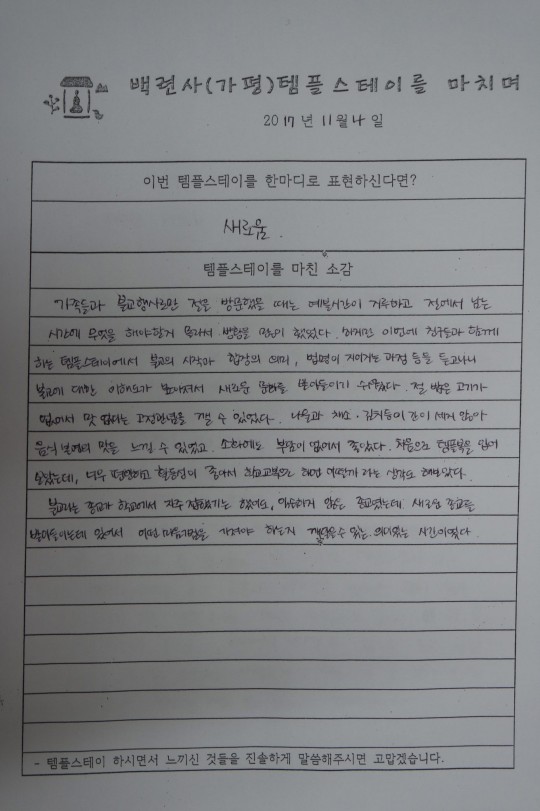 백련사(가평)템플스테이를 마치며
2017년 11월 4일
이번 템플스테이를 한마디로 표현하신다면?
새로움.
템플스테이를 마친 소감
가족들과 불교행사로만 절을 방문했을 때는 예불시간이 지루하고 절에서 남는
시간에 무엇을 해야할지 몰라서 방황을 많이 했었다. 하지만 이번에 친구들과 함께
하는 템플스테이에서 불교의 시작과 합장의 의미, 법명이 지어지는 과정 등을 듣고나니
불교에 대한 이해도가 높아져서 새로운 문화를 받아들이기 쉬웠다. 절 밥은 고기가
없어서 맛 없다는 고정관념을 깰 수 있었다. 나물과 채소·김치등이 간이 세지 않아
음식 본연의 맛을 느낄 수 있었고, 소화에도 부담이 없어서 좋았다. 처음으로 템플복을 입어
보았는데, 너무 편안하고 활동성이 좋아서 학교교복으로 하면 어떨까 라는 생각도 해보았다.
불교라는 종교가 학교에서 자주 접하기는 했어도, 익숙하지 않은 종교였는데 새로운 종교를
받아들이는데 있어서 어떤 마음가짐을 가져야 하는지 깨달을 수 있는 의미있는 시간이었다.
- 템플스테이 하시면서 느끼신 것들을 진솔하게 말씀해주시면 고맙겠습니다.